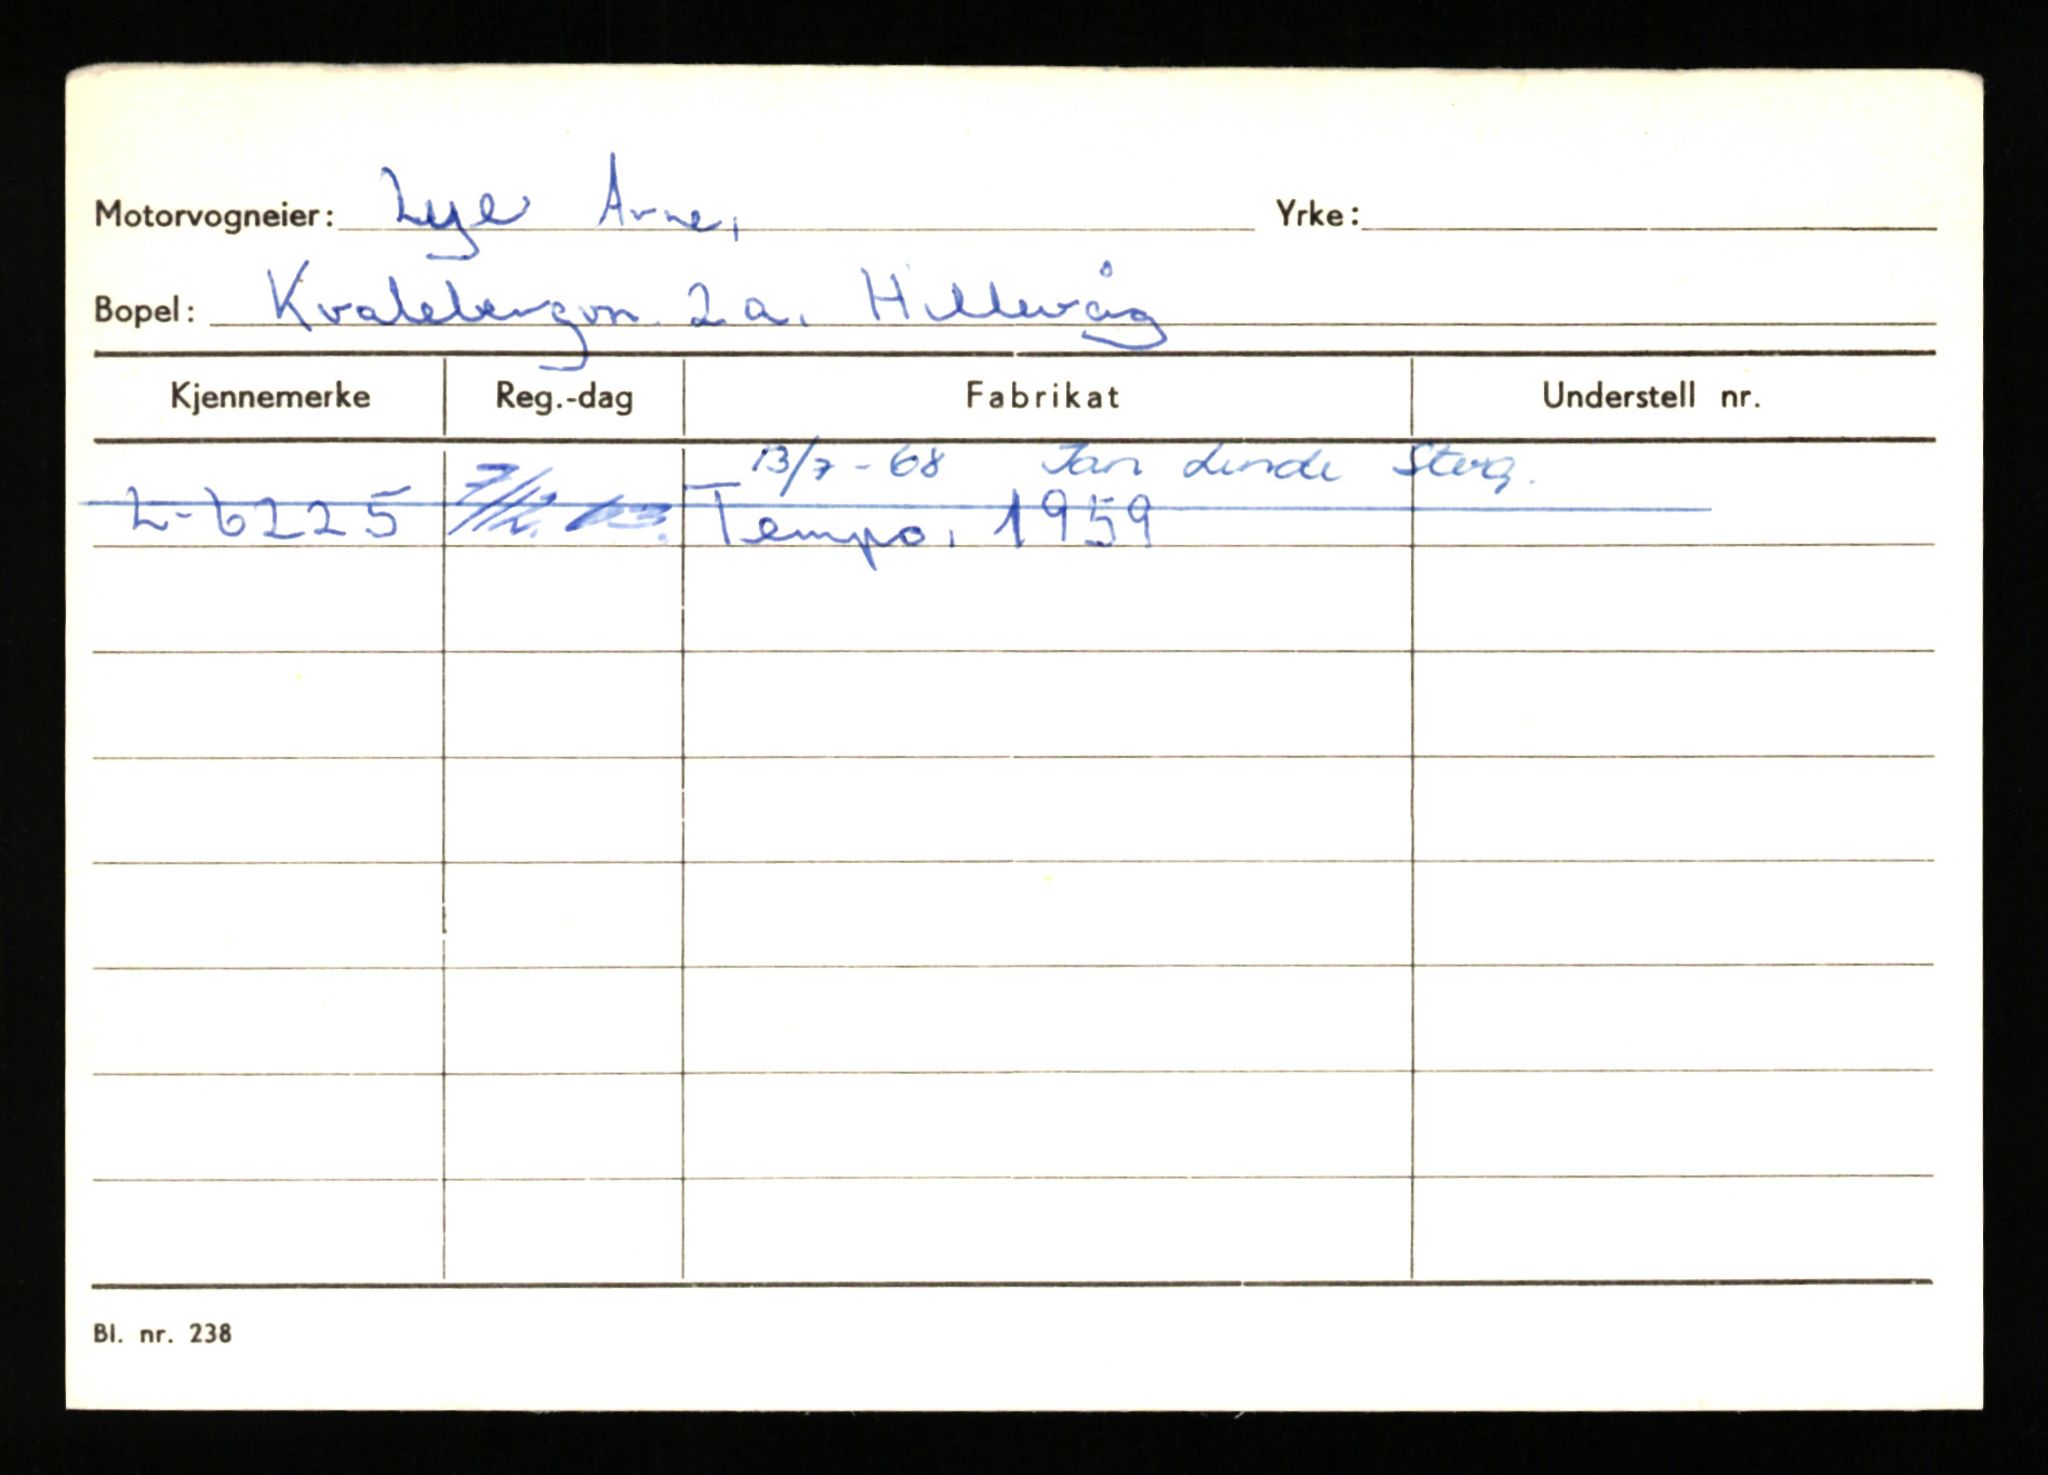 Motorvogneier: Lye Arne, Yrke:
Bopel: Kvalebergvn. 2a. Hillevåg
Kjennemerke Reg.-dag Fabrikat Understell nr.
13/7-68 Jan Linde Stvg.
L-6225 Tempo, 1959
Bl. nr. 238